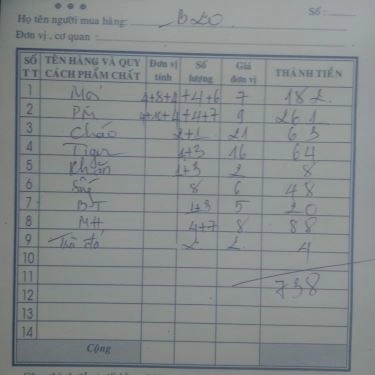 Số:
Họ tên người mua hàng: B20
Đơn vị, cơ quan:
SỐ TT TÊN HÀNG VÀ QUY CÁCH PHẨM CHẤT Đơn vị tính Số lượng Giá đơn vị THÀNH TIỀN
1 4+8+4+4+6 7 182
2 4+8+4+4+7 9 261
3 Cháo 2+1 21 63
4 Tiger 1+3 16 64
5 Khăn 1+3 2 8
6 8 6 48
7 BT 1+3 5 20
8 MH 4+7 8 88
9 Trà đá 2 2 4
10
11
12 738
13
14
Cộng